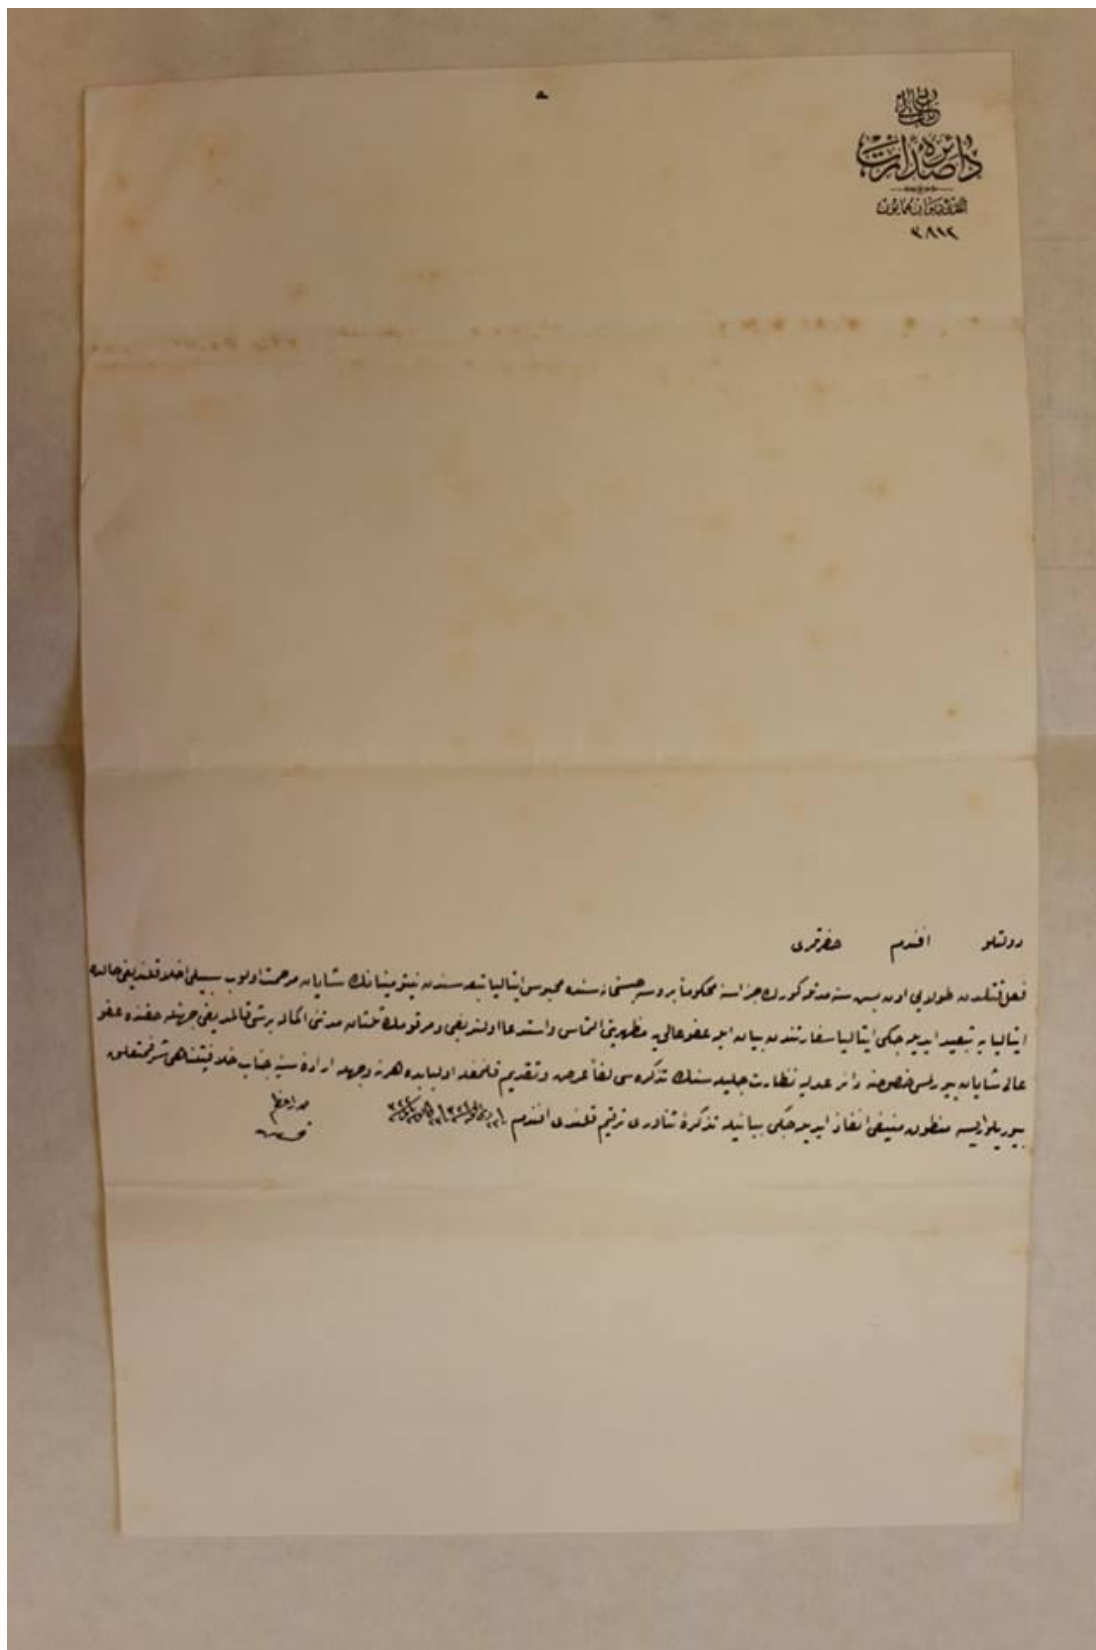 باب عالی
دائرهٔ صدارت
آمدی دیوان همایون
٣٨١٢
دولتلو افندم حضرتلری
فعل قتلدن طولایی اون بش سنه مدتله كورك جزاسنه محكوماً بروسه حبسخانه سنده محبوس ایتالیا تبعه سندن شایان مرحمت اولوب سبیلی اخلا قلندیغی حالده
ایتالیایه تبعید ایدیله جكی ایتالیا سفارتندن بیان ایله عفو عالی یه مظهریتی التماس واستدعا اولندیغی ومرقومك ثلثان مدتنی اكماله برشی قالمدیغی جهتله حقنده عفو
عالی شایان بیورلمسی خصوصنه دائر عدلیه نظارت جلیله سنك تذكره سی لفاً عرض وتقدیم قلنمغله اولبابده هر نه وجهله ارادهٔ سنیهٔ جناب خلافتپناهی شرفمتعلق
بیوریلور ایسه منطوق منیفی انفاذ ایدیله جكی بیانیله تذكرهٔ ثناوری ترقیم قلندی افندم
صدر اعظم